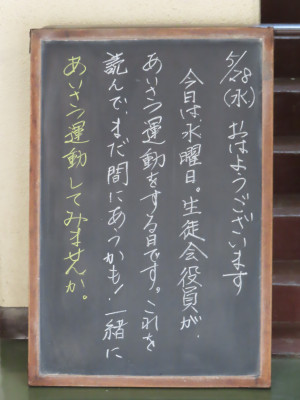 5/28(水) おはようございます
今日は、水曜日。生徒会役員が、
あいさつ運動をする日です。これを
読んで、まだ間にあうかも！一緒に
あいさつ運動してみませんか。